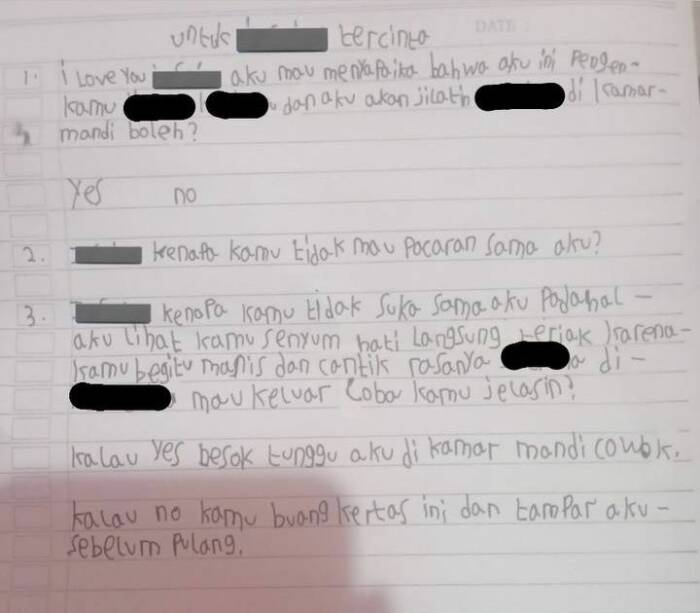 untuk tercinta
DATE
1. i Love You aku mau menyapaika bahwa aku ini Pengen-
kamu dan aku akan jilatin di kamar-
mandi boleh?
Yes no
2. kenapa kamu tidak mau Pacaran sama aku?
3. kenapa kamu tidak suka sama aku Padahal -
aku Lihat kamu senyum hati Langsung teriak karena-
kamu begitu manis dan cantik rasanya di -
mau keluar Coba kamu jelasin?
kalau Yes besok tunggu aku di kamar mandi cowok.
kalau no kamu buang kertas ini dan tampar aku -
sebelum Pulang.